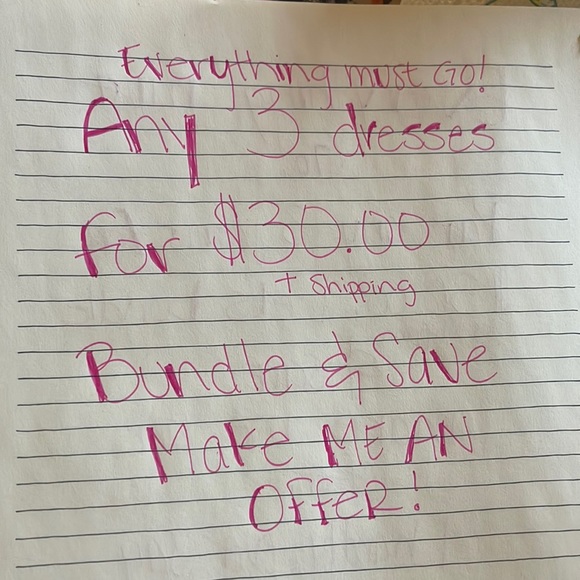 Everything must GO!
Any 3 dresses
for $30.00
+ Shipping
Bundle & Save
Make ME AN
OFFER!